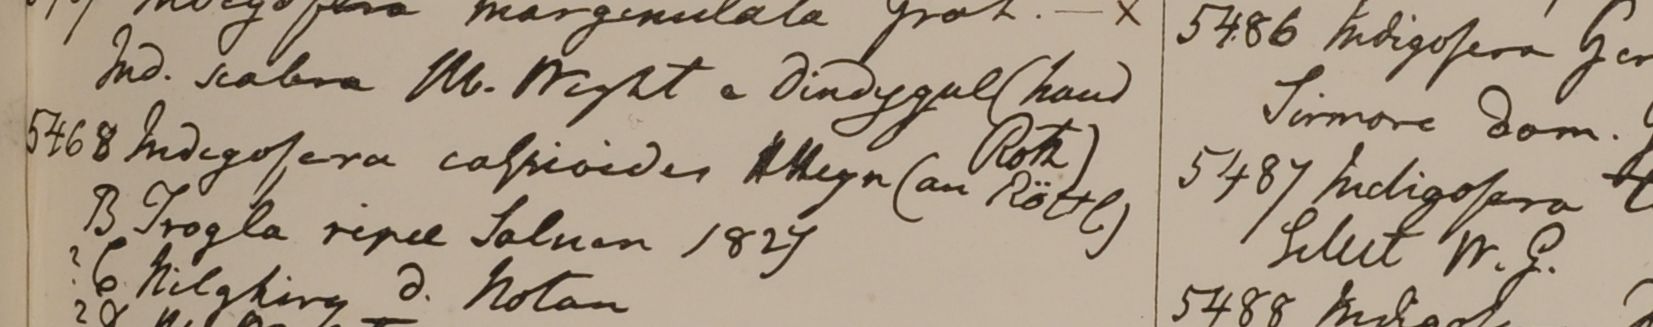 Indigofera marginulata Grah. — x
Ind. scabra Hb. Wight e Dindygul (haud
Roth)
5468 Indigofera caspioides Heyn (an Röttl)
B Trogla ripae Saluen 1827
? C Nilghiry d. Notan
5486 Indigofera Ger
Sirmore dom. G
5487 Indigofera
Silect W. G.
5488 Indigof